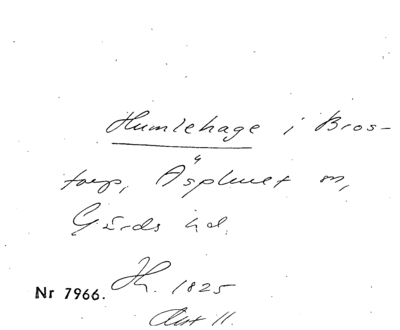 Humlehage i Bros-
torp, Äsphult m,
Gärds hd.
Nr 7966. Hh. 1825
Akt 11.